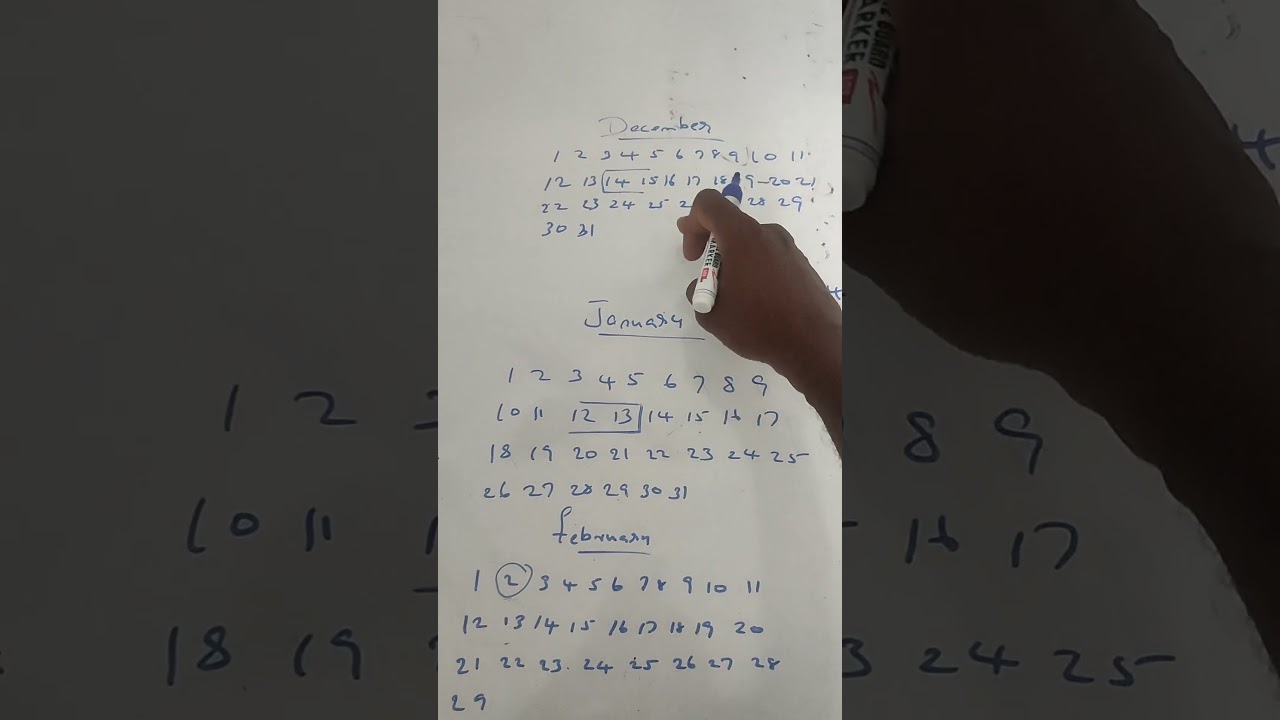 December
1 2 3 4 5 6 7 8 9 10 11
12 13 14 15 16 17 18 19 20 21
22 23 24 25 28 29
30 31
January
1 2 3 4 5 6 7 8 9
10 11 12 13 14 15 16 17
18 19 20 21 22 23 24 25
26 27 28 29 30 31
february
1 2 3 4 5 6 7 8 9 10 11
12 13 14 15 16 17 18 19 20
21 22 23 24 25 26 27 28
29
MARKER